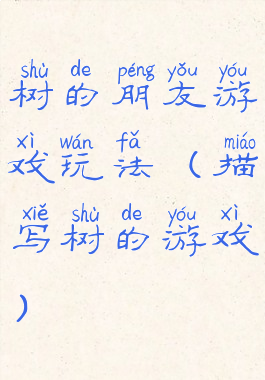 shù de péng yǒu yóu
树的朋友游
xì wán fǎ miáo
戏玩法(描
xiě shù de yóu xì
写树的游戏
)